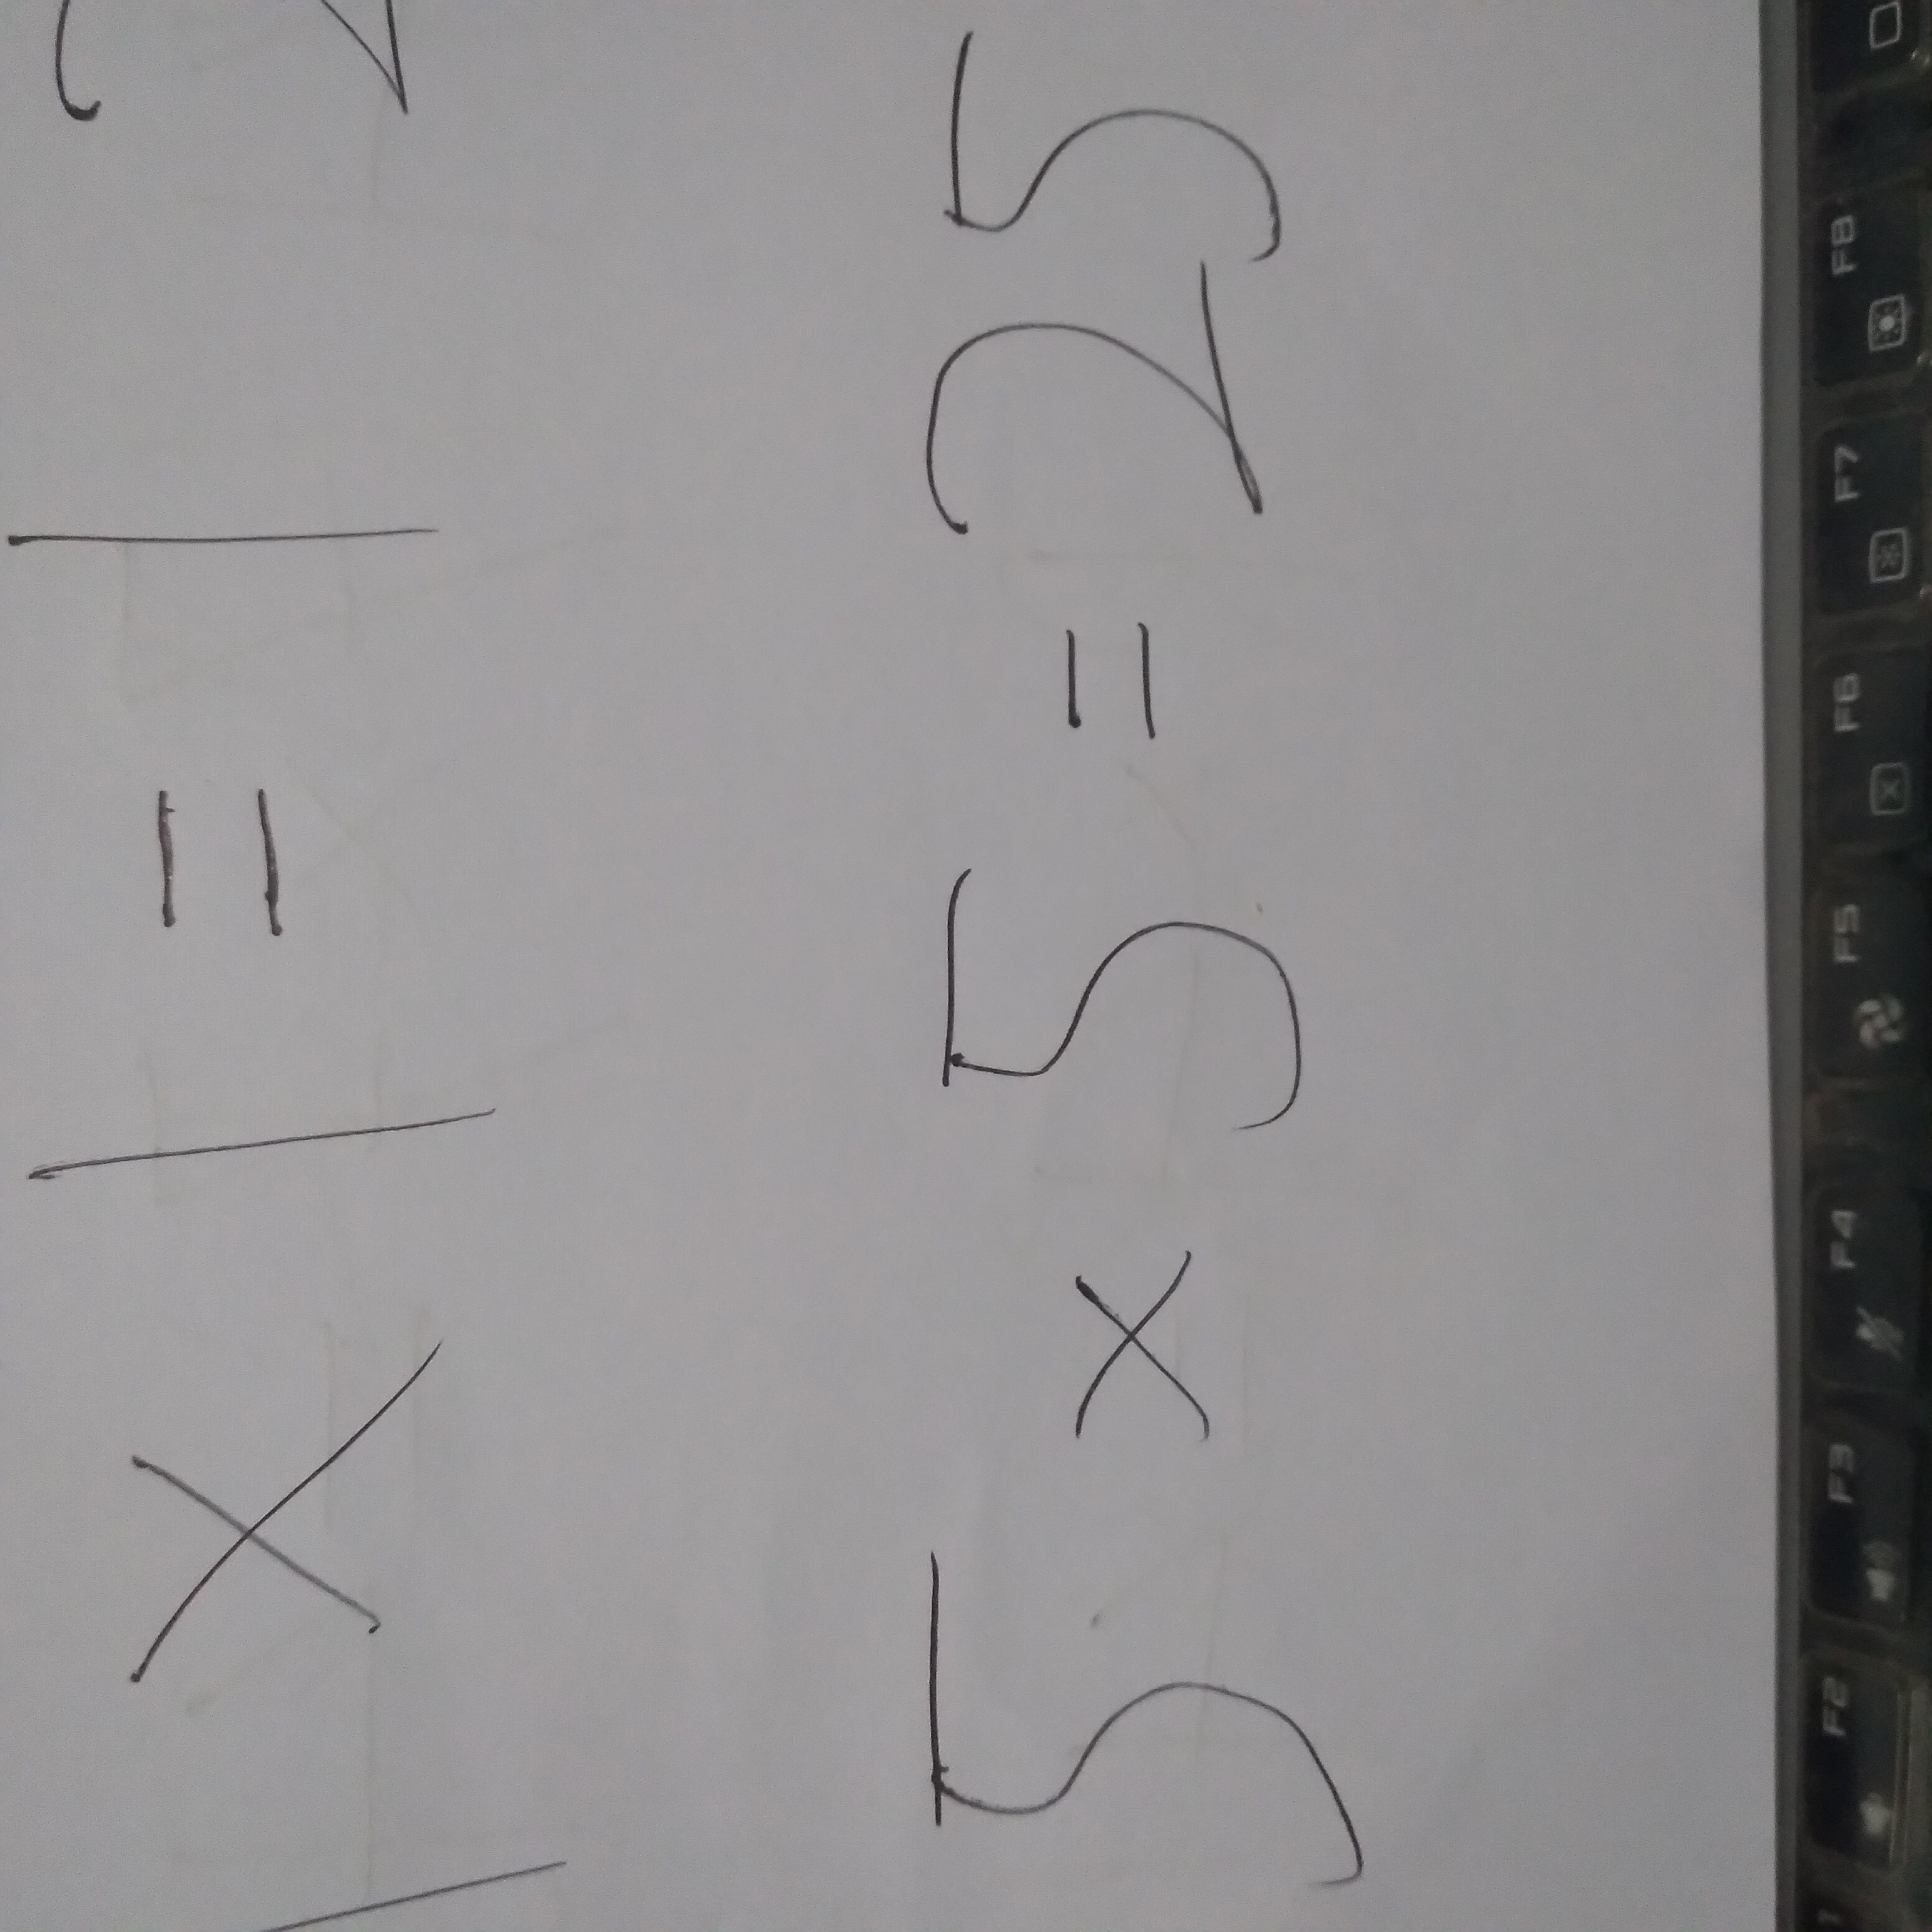 1 x 1 = 1 2
5 x 5 = 25
F2 F3 F4 F5 F6 F7 F8